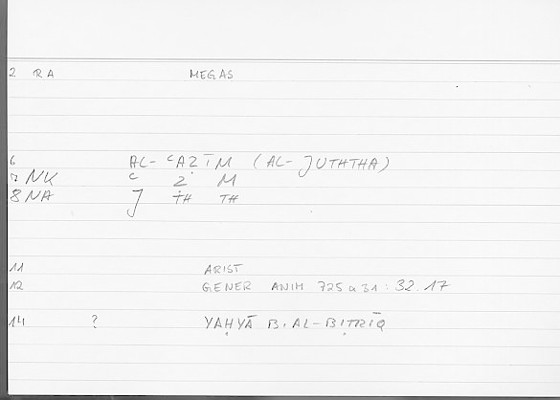 2 RA MEGAS
6 AL- ʿAẒĪM (AL- JUTHTHA)
7 NK ʿ Ẓ M
8 NA J TH TH
11 ARIST
12 GENER ANIM 725 a 31 : 32.17
14 ? YAḤYĀ B. AL-BIṬRĪQ